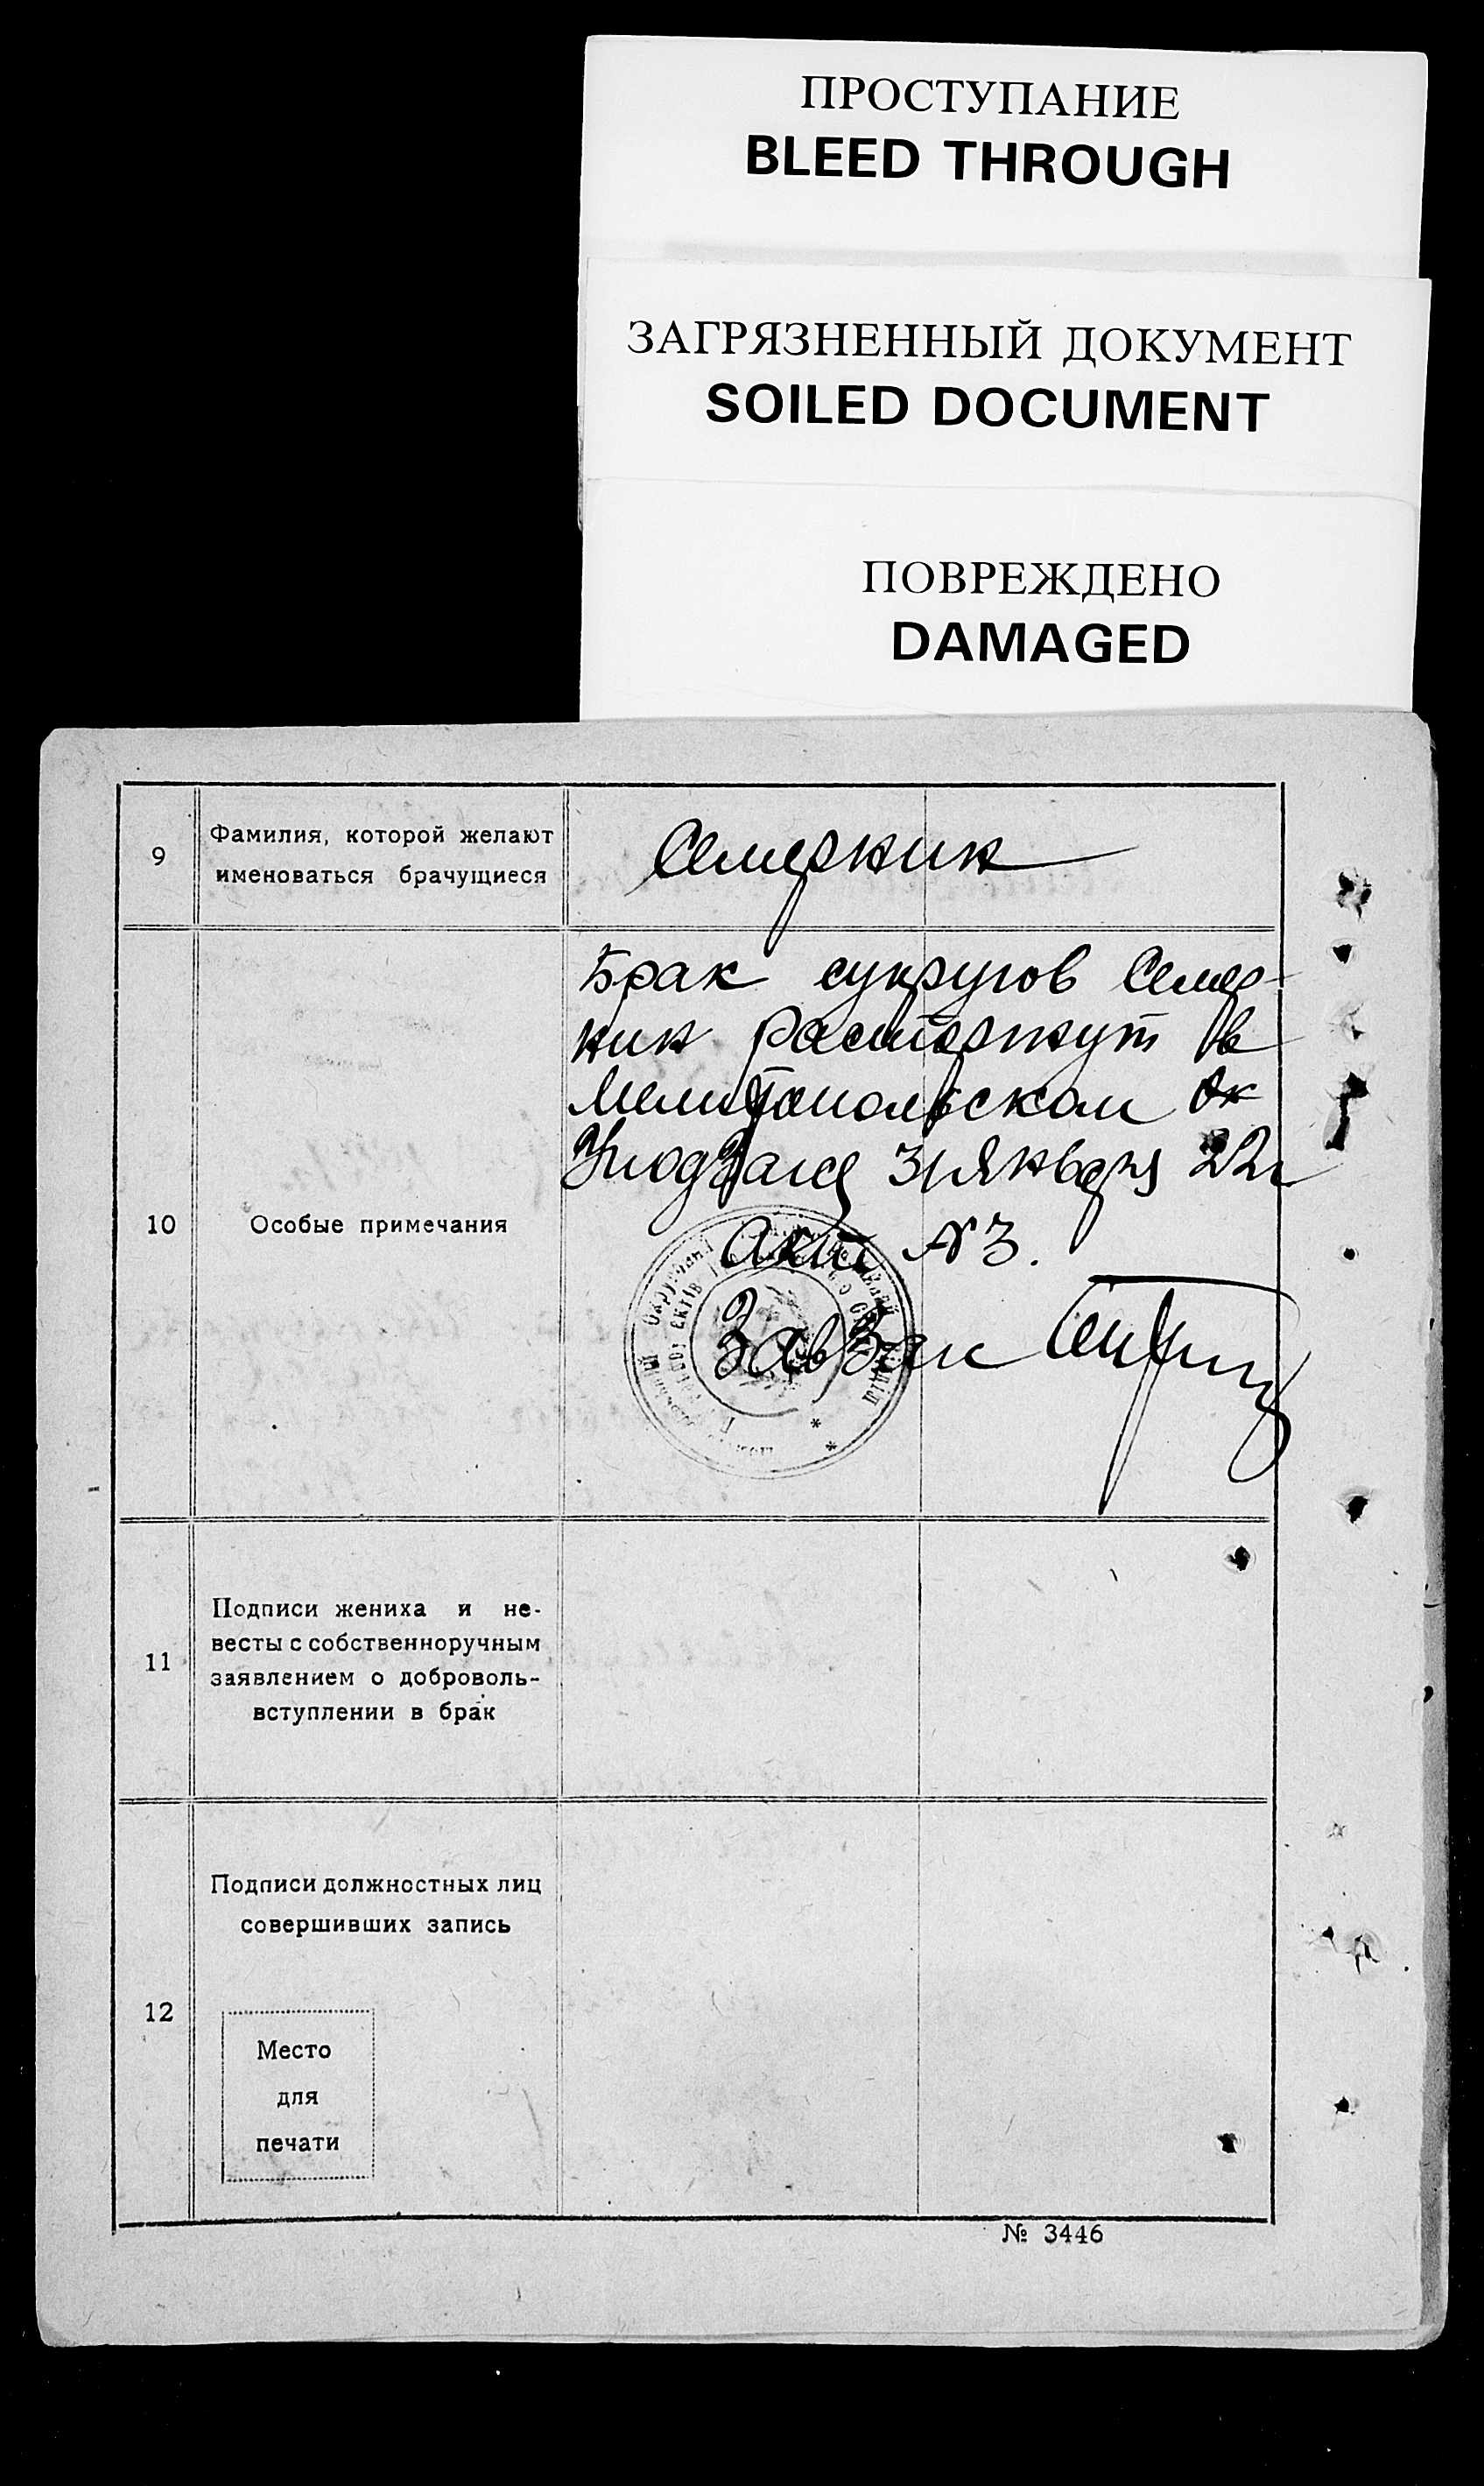 ПРОСТУПАНИЕ
BLEED THROUGH
ЗАГРЯЗНЕННЫЙ ДОКУМЕНТ
SOILED DOCUMENT
ПОВРЕЖДЕНО
DAMAGED
9
Фамилия, которой желают
именоваться брачущиеся
Семерник
10
Особые примечания
Брак супругов Семер-
ник расторгнут в
Мелитопольском Ок
31 Января 22г
акт № 3.
Завзагс
11
Подписи жениха и не-
весты с собственноручным
заявлением о доброволь-
вступлении в брак
12
Подписи должностных лиц
совершивших запись
Место
для
печати
№ 3446